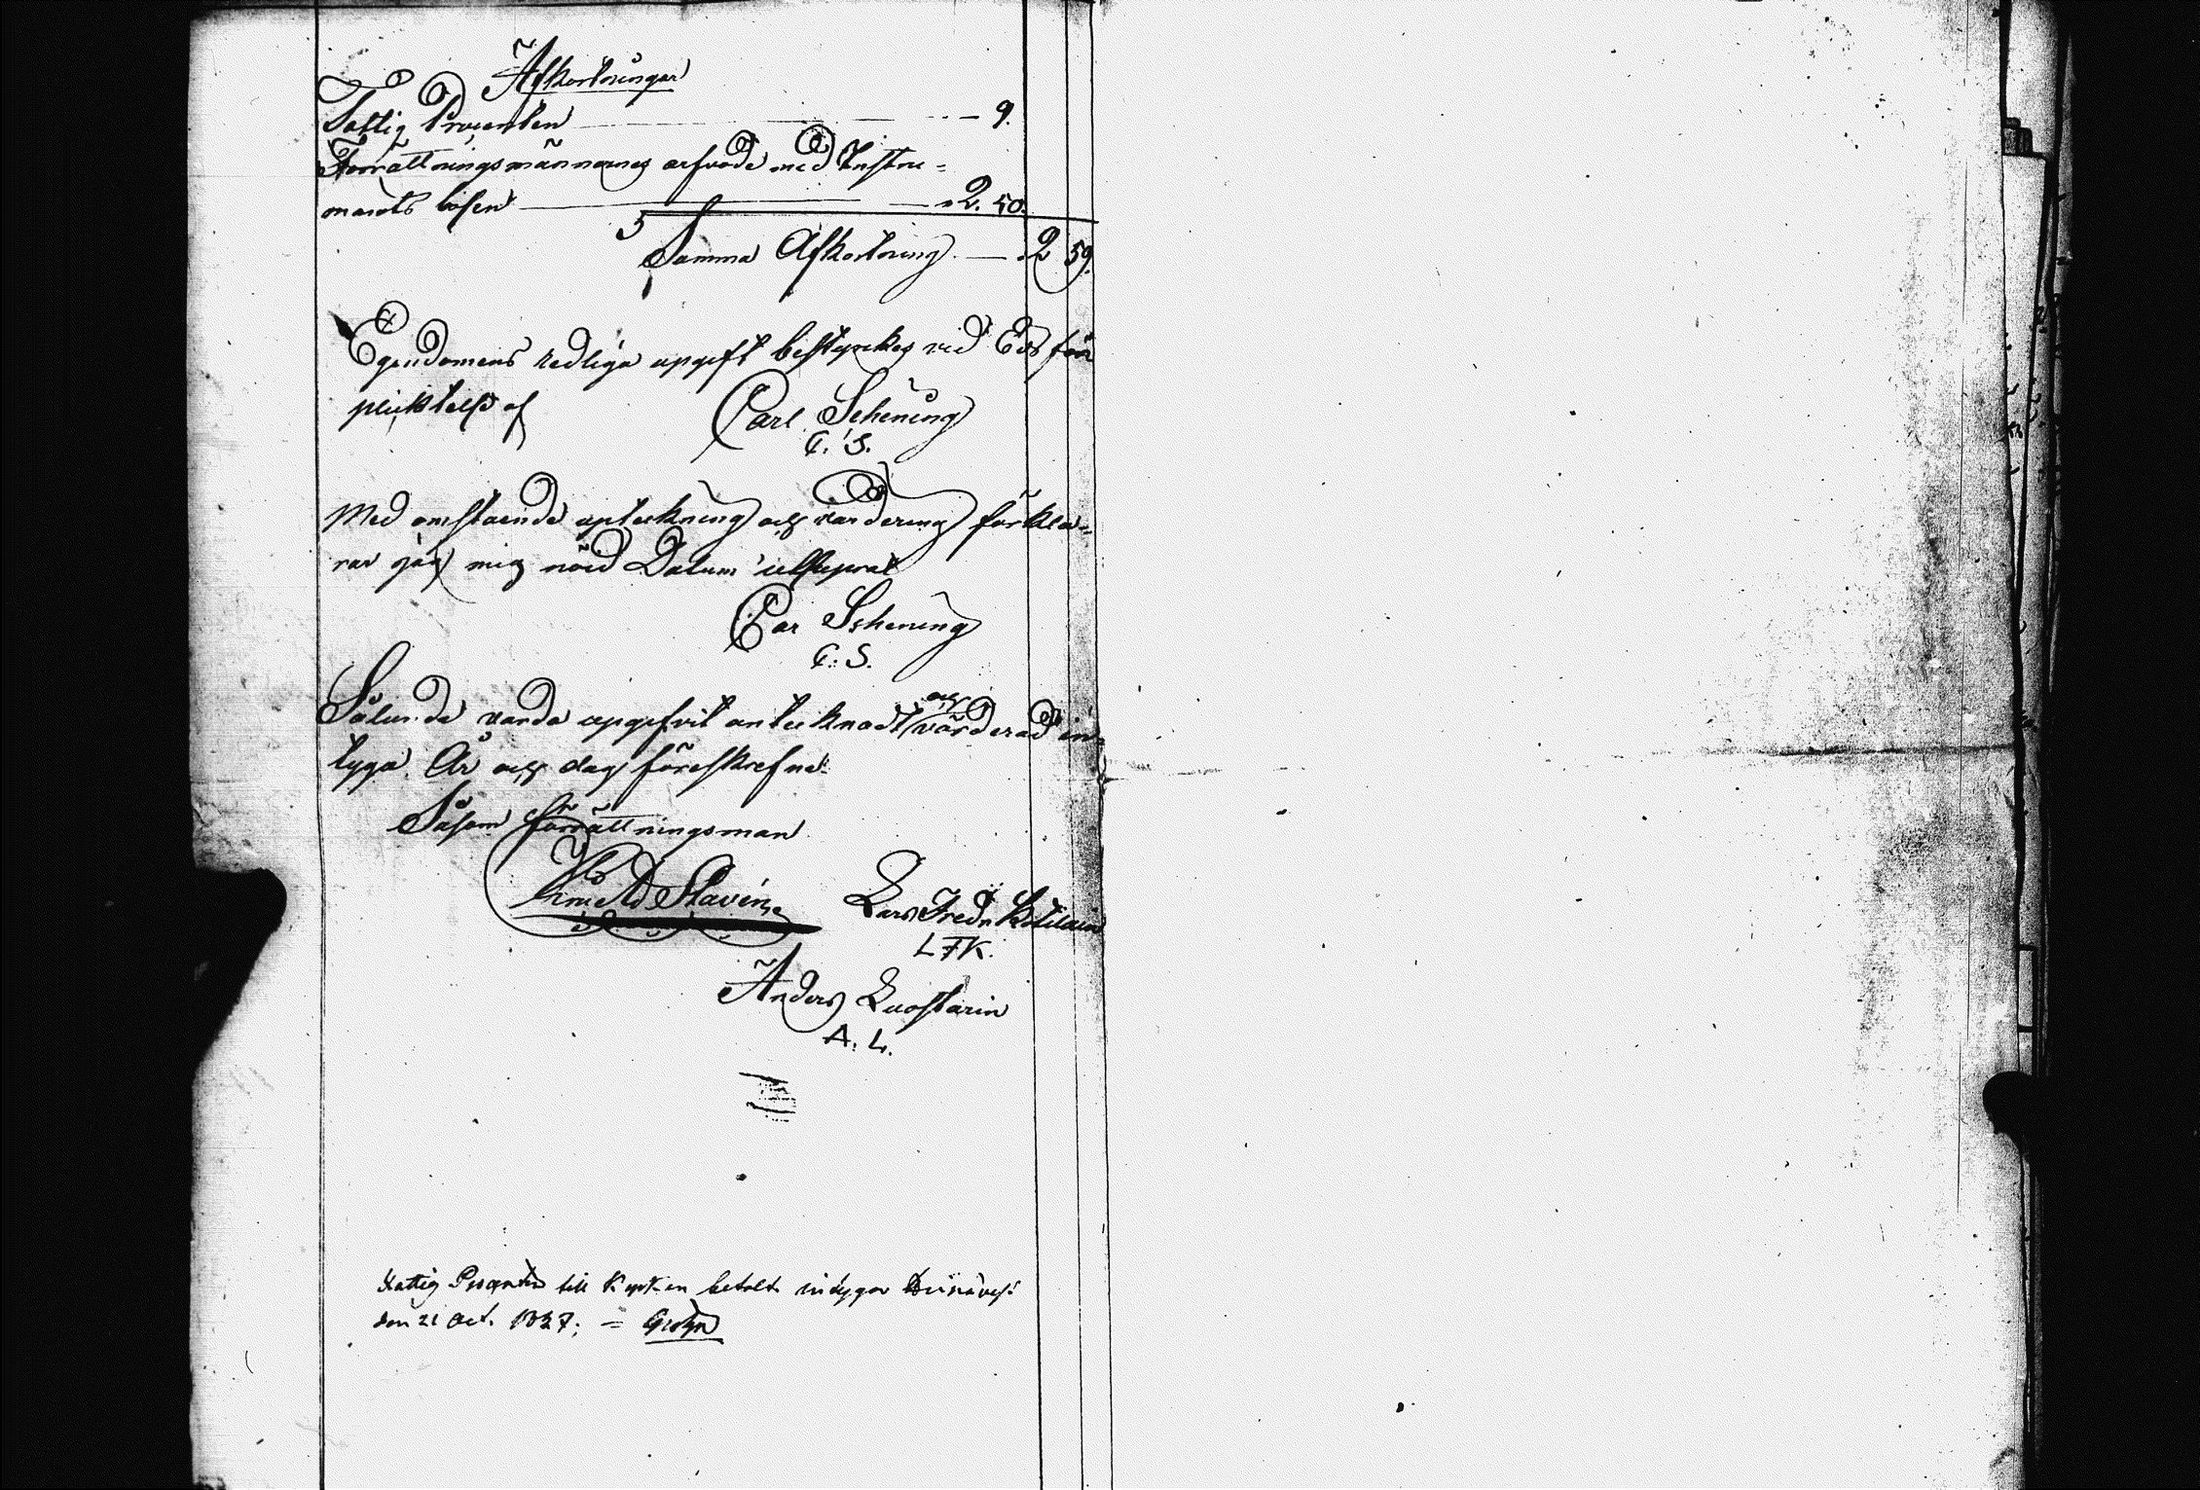 Afkortningar
Fattig Procenten — 9.
Förrättningsmännernes arfvode med Instru=
mänts lösen — 2. 50.
Summa Afkortning — 2 59.
Egendomens redliga upgift bestyrkes vid Eds för
plicktelse af Carl Schening
C. S.
Med omstående upteckning och värdering förkla=
rar jag mig nöid Datum utsupra
Car Schening
C. S.
Sålunda vara upgifvit antecknadt och värderad in=
tyga. År och dag föreskrefne.
Såsom förrättningsman
Lars Fredr
LFK.
Anders Luostarin
A. L.
Fattig Procenten till Kyrkan betalt intygar
den 21 Oct. 1837; =